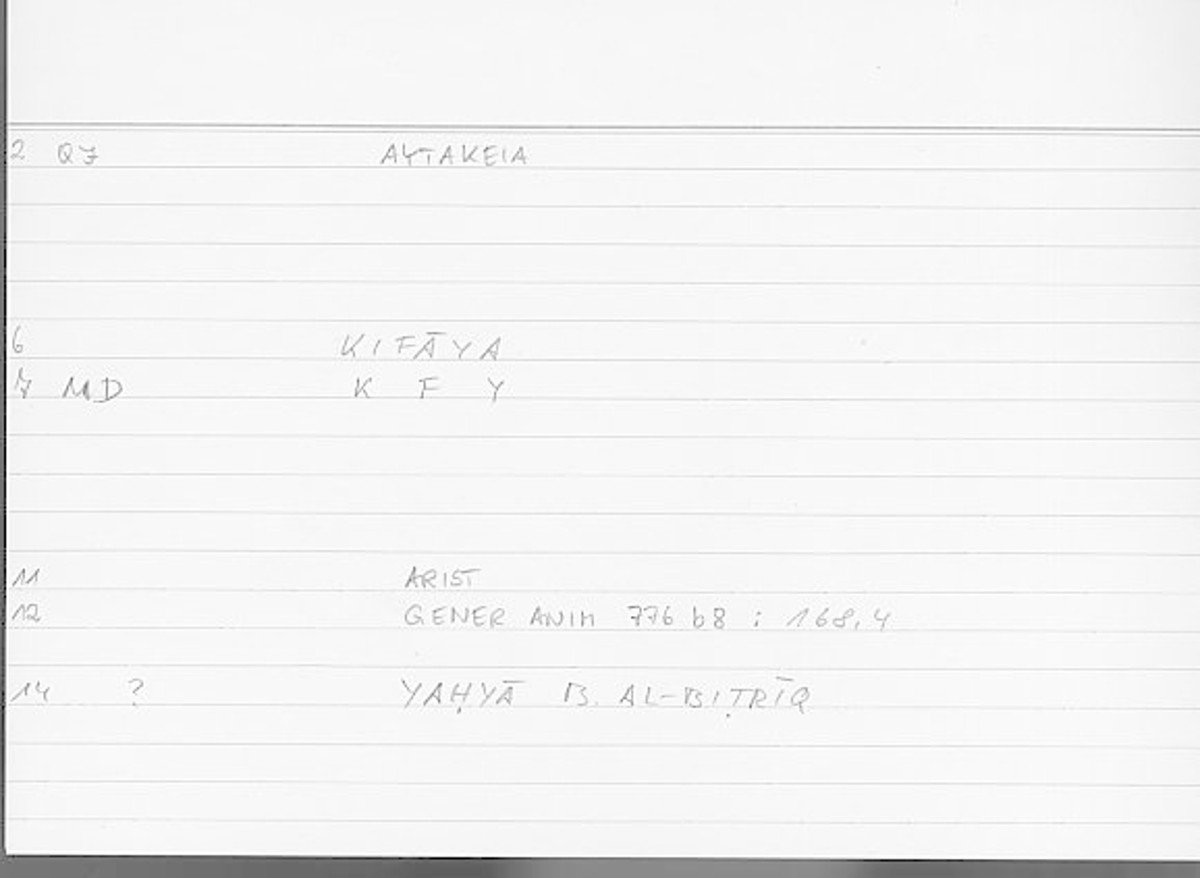 2 QJ ΑΥΤΑΚΕΙΑ
6 KIFĀYA
7 MD K F Y
11 ARIST
12 GENER ANIM 776 b8 : 168,4
14 ? YAḤYĀ B. AL-BIṬRĪQ